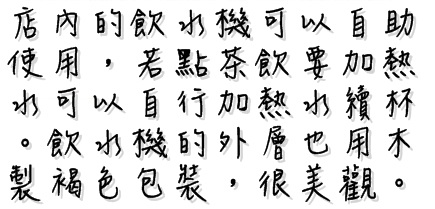 店內的飲水機可以自助
使用，若點茶飲要加熱
水可以自行加熱水續杯
。飲水機的外層也用木
製褐色包裝，很美觀。